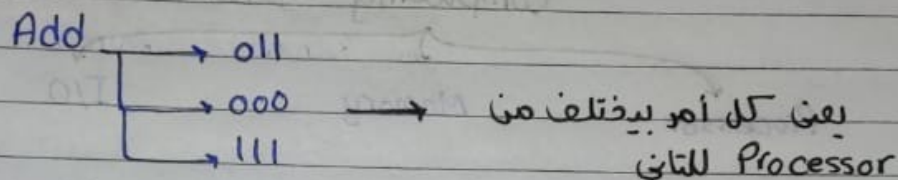 Add → 011
→ 000 → يعنى كل أمر بيختلف من
→ 111 Processor للتانى